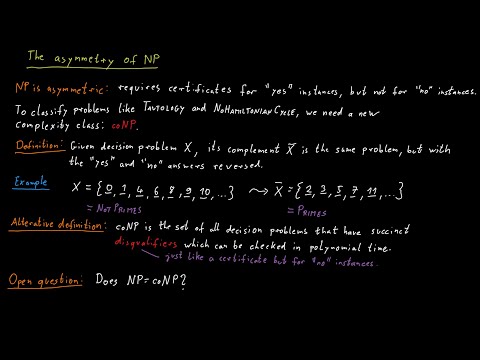 The asymmetry of NP
NP is asymmetric: requires certificates for "yes" instances, but not for "no" instances.
To classify problems like TAUTOLOGY and NOHAMILTONIANCYCLE, we need a new
complexity class: coNP.
Definition: Given decision problem X, its complement X̅ is the same problem, but with
the "yes" and "no" answers reversed.
Example X = {0, 1, 4, 6, 8, 9, 10, ...} ⤳ X̅ = {2, 3, 5, 7, 11, ...}
= NOT PRIMES = PRIMES
Alternative definition: coNP is the set of all decision problems that have succinct
disqualifiers which can be checked in polynomial time.
just like a certificate but for "no" instances...
Open question: Does NP = coNP?